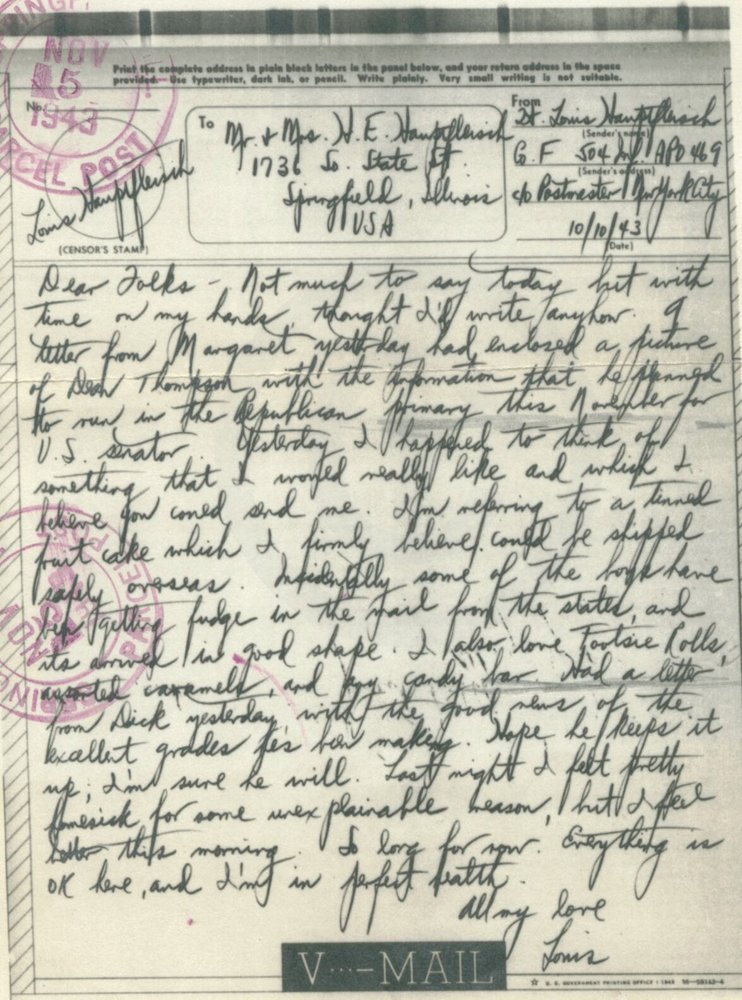 NOV
15
1943
PARCEL POST
Print the complete address in plain block letters in the panel below, and your return address in the space
provided. Use typewriter, dark ink, or pencil. Write plainly. Very small writing is not suitable.
No.
To
Mr. & Mrs. H. E. Hauptfleisch
1736 So. State St.
Springfield, Illinois
USA
From
Lt. Louis Hauptfleisch
(Sender's name)
G. F 504 Inf. APO 469
(Sender's address)
c/o Postmaster New York City
10/10/43
(Date)
Louis Hauptfleisch
(CENSOR'S STAMP)
Dear Folks - Not much to say today but with
time on my hands, thought I'd write anyhow. A
letter from Margaret yesterday had enclosed a picture
of Thompson with the information that he planned
to run in the Republican primary this November for
U.S. senator. Yesterday I happened to think of
something that I would really like and which I
believe you could send me. I'm referring to a tinned
fruit cake which I firmly believe could be shipped
safely overseas. Insidentally some of the boys have
been getting fudge in the mail from the states, and
its arrived in good shape. I also love Tootsie Rolls,
assorted caramels, and any candy bar. Had a letter
from Dick yesterday, with the good news of the
excellent grades he's been making. Hope he keeps it
up; I'm sure he will. Last night I felt pretty
homesick for some unexplainable reason, but I feel
better this morning. So long for now. Everything is
OK here, and I'm in perfect health.
All my love
Louis
V···-MAIL
U. S. GOVERNMENT PRINTING OFFICE : 1943